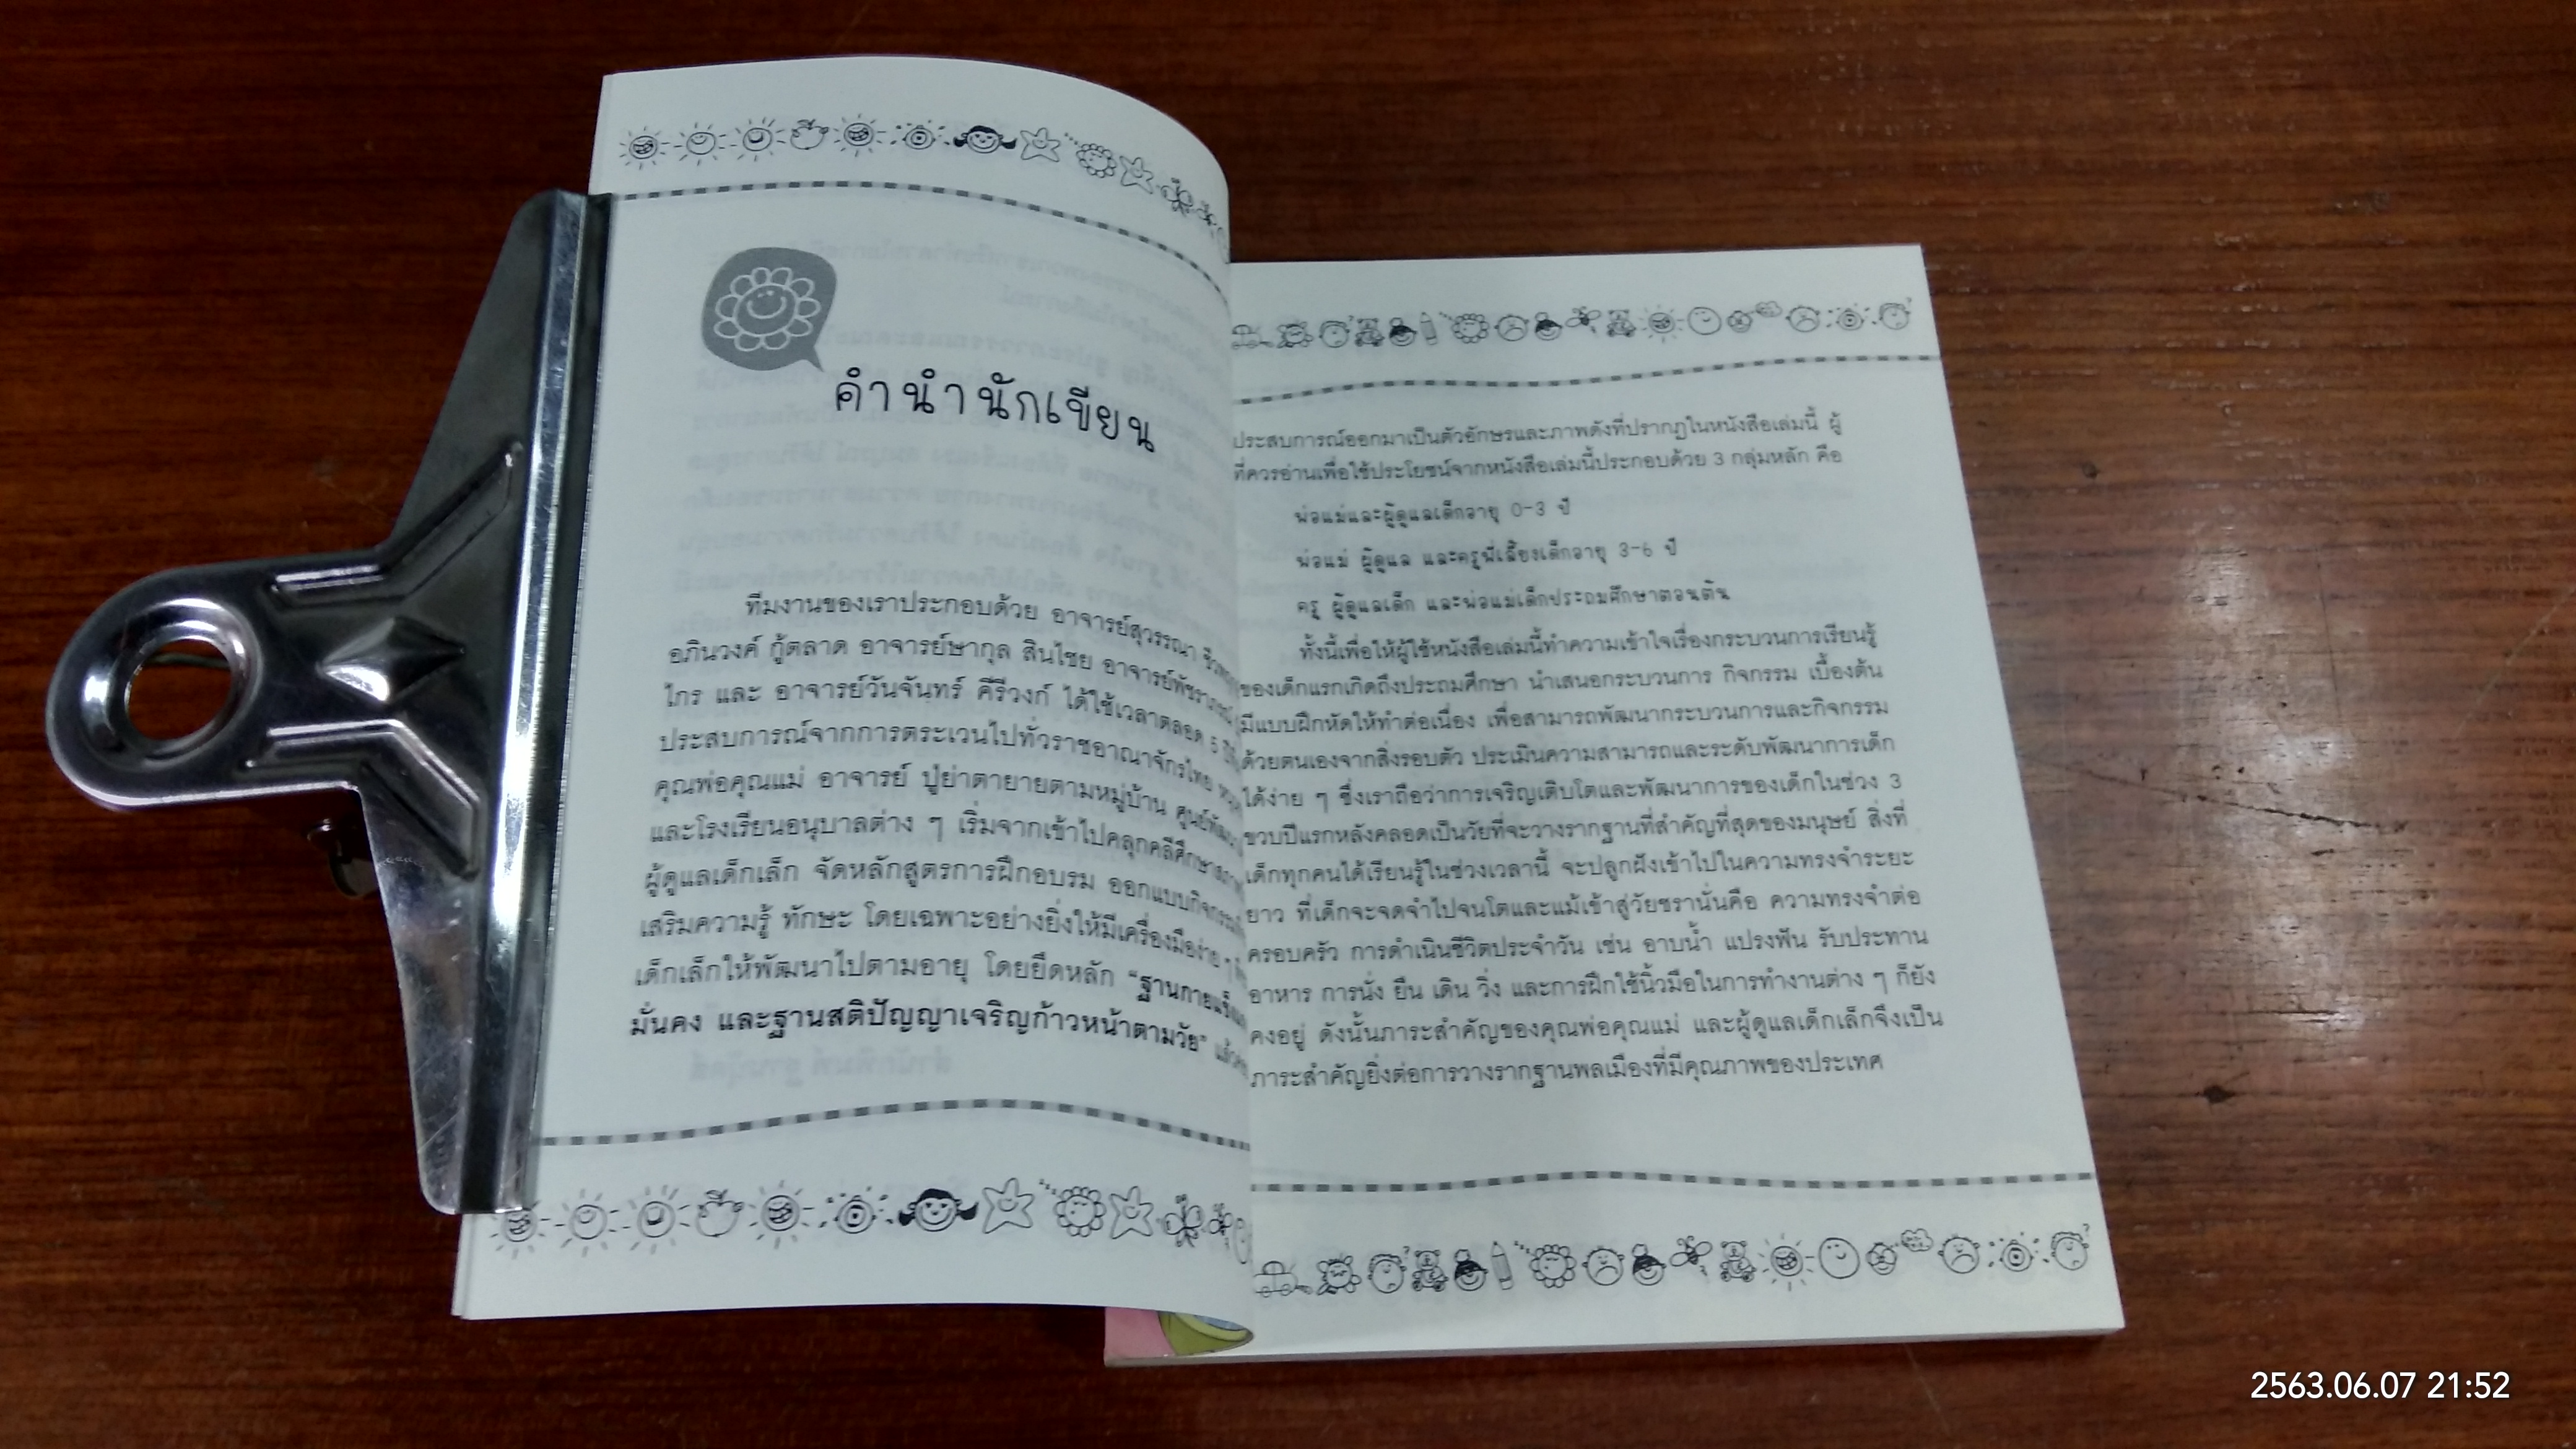 คำนำนักเขียน
ทีมงานของเราประกอบด้วย อาจารย์สุวรรณา
อภินวงค์ กู้ตลาด อาจารย์ษากุล สินไชย
ไกร และ อาจารย์วันจันทร์ คีรีวงก์ ได้ใช้เวลาตลอด 5
ประสบการณ์จากการตระเวนไปทั่วราชอาณาจักรไทย
คุณพ่อคุณแม่ อาจารย์ ปู่ย่าตายายตามหมู่บ้าน
และโรงเรียนอนุบาลต่าง ๆ เริ่มจากเข้าไปคลุกคลีศึกษา
ผู้ดูแลเด็กเล็ก จัดหลักสูตรการฝึกอบรม
เสริมความรู้ ทักษะ โดยเฉพาะอย่างยิ่งให้มีเครื่องมือง่าย ๆ
เด็กเล็กให้พัฒนาไปตามอายุ โดยยึดหลัก
มั่นคง และฐานสติปัญญาเจริญก้าวหน้าตามวัย"
ประสบการณ์ออกมาเป็นตัวอักษรและภาพดังที่ปรากฏในหนังสือเล่มนี้ ผู้
ที่ควรอ่านเพื่อใช้ประโยชน์จากหนังสือเล่มนี้ประกอบด้วย 3 กลุ่มหลัก คือ
พ่อแม่และผู้ดูแลเด็กอายุ 0-3 ปี
พ่อแม่ ผู้ดูแล และครูพี่เลี้ยงเด็กอายุ 3-6 ปี
ครู ผู้ดูแลเด็ก และพ่อแม่เด็กประถมศึกษาตอนต้น
ทั้งนี้เพื่อให้ผู้ใช้หนังสือเล่มนี้ทำความเข้าใจเรื่องกระบวนการเรียนรู้
ของเด็กแรกเกิดถึงประถมศึกษา นำเสนอกระบวนการ กิจกรรม เบื้องต้น
มีแบบฝึกหัดให้ทำต่อเนื่อง เพื่อสามารถพัฒนากระบวนการและกิจกรรม
ด้วยตนเองจากสิ่งรอบตัว ประเมินความสามารถและระดับพัฒนาการเด็ก
ได้ง่าย ๆ ซึ่งเราถือว่าการเจริญเติบโตและพัฒนาการของเด็กในช่วง 3
ขวบปีแรกหลังคลอดเป็นวัยที่จะวางรากฐานที่สำคัญที่สุดของมนุษย์ สิ่งที่
เด็กทุกคนได้เรียนรู้ในช่วงเวลานี้ จะปลูกฝังเข้าไปในความทรงจำระยะ
ยาว ที่เด็กจะจดจำไปจนโตและแม้เข้าสู่วัยชรานั่นคือ ความทรงจำต่อ
ครอบครัว การดำเนินชีวิตประจำวัน เช่น อาบน้ำ แปรงฟัน รับประทาน
อาหาร การนั่ง ยืน เดิน วิ่ง และการฝึกใช้นิ้วมือในการทำงานต่าง ๆ ก็ยัง
คงอยู่ ดังนั้นภาระสำคัญของคุณพ่อคุณแม่ และผู้ดูแลเด็กเล็กจึงเป็น
ภาระสำคัญยิ่งต่อการวางรากฐานพลเมืองที่มีคุณภาพของประเทศ
2563.06.07 21:52